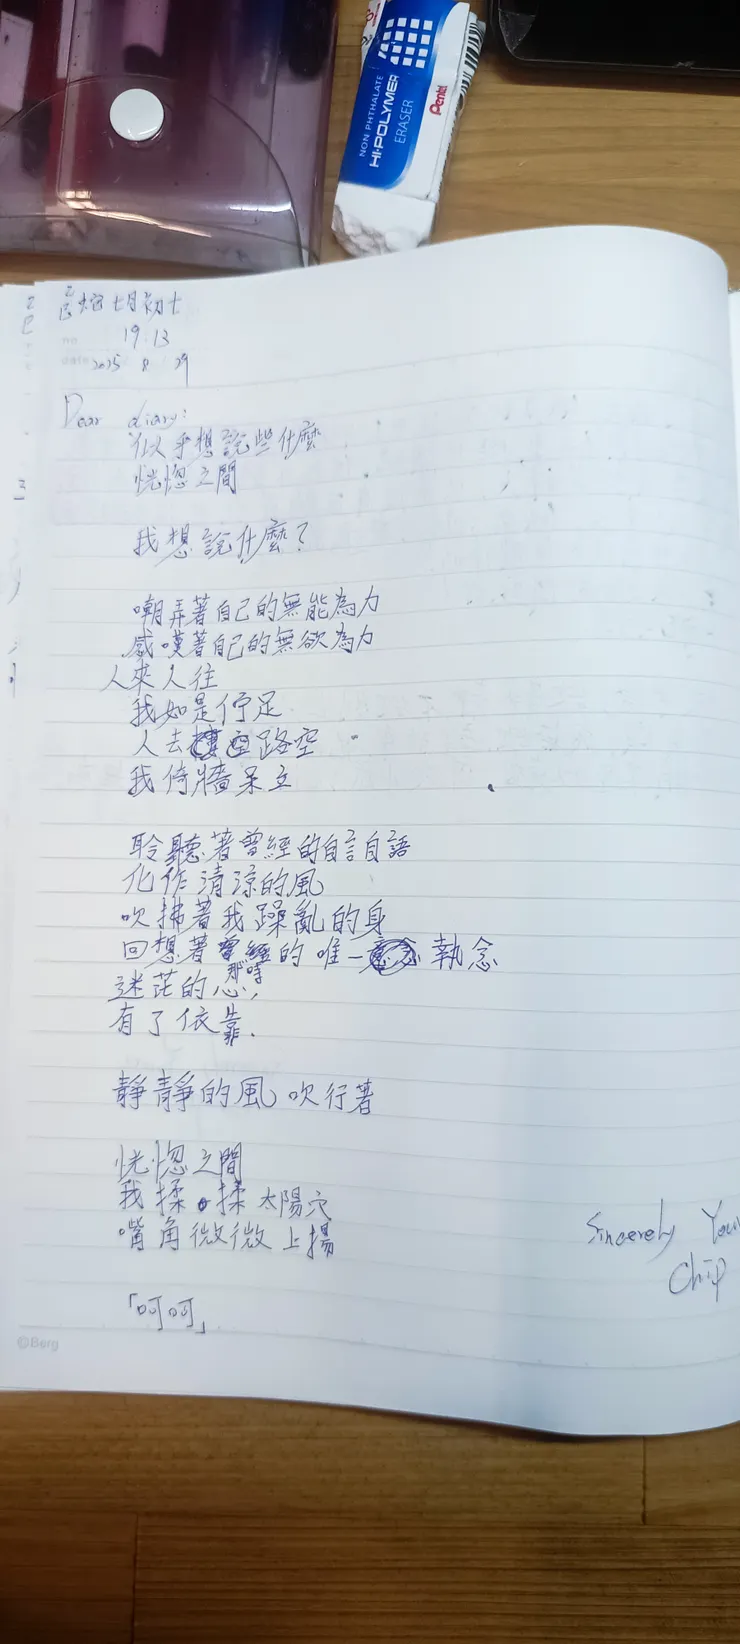 NON PHTHALATE
HI-POLYMER
ERASER
Pentel
乙巳 七月初七
no
19:13
date 2025 8 29
Dear diary:
似乎想說些什麼
恍惚之間
我想說什麼?
嘲弄著自己的無能為力
感嘆著自己的無欲為力
人來人往
我如是佇足
人去路空
我倚牆呆立
聆聽著曾經的自言自語
化作清涼的風
吹拂著我躁亂的身
回想著曾經的唯一執念
那時
迷茫的心,
有了依靠.
靜靜的風吹行著
恍惚之間
我揉揉太陽穴
嘴角微微上揚
Sincerely
Chip
「呵呵」
©Berg